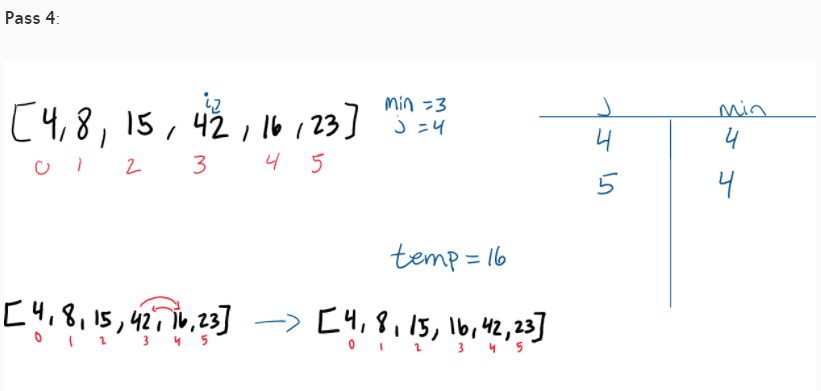 Pass 4:
i
[4, 8, 15, 42, 16, 23]
0 1 2 3 4 5
min = 3
j = 4
j min
4 4
5 4
temp = 16
[4, 8, 15, 42, 16, 23] → [4, 8, 15, 16, 42, 23]
0 1 2 3 4 5 0 1 2 3 4 5